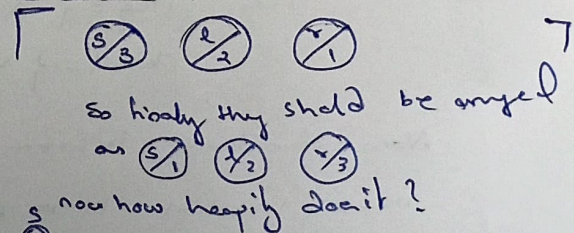 s/3 l/2 r/1
So finaly they shold be arranged
as s/1 l/2 r/3
now how heapify does it?
s